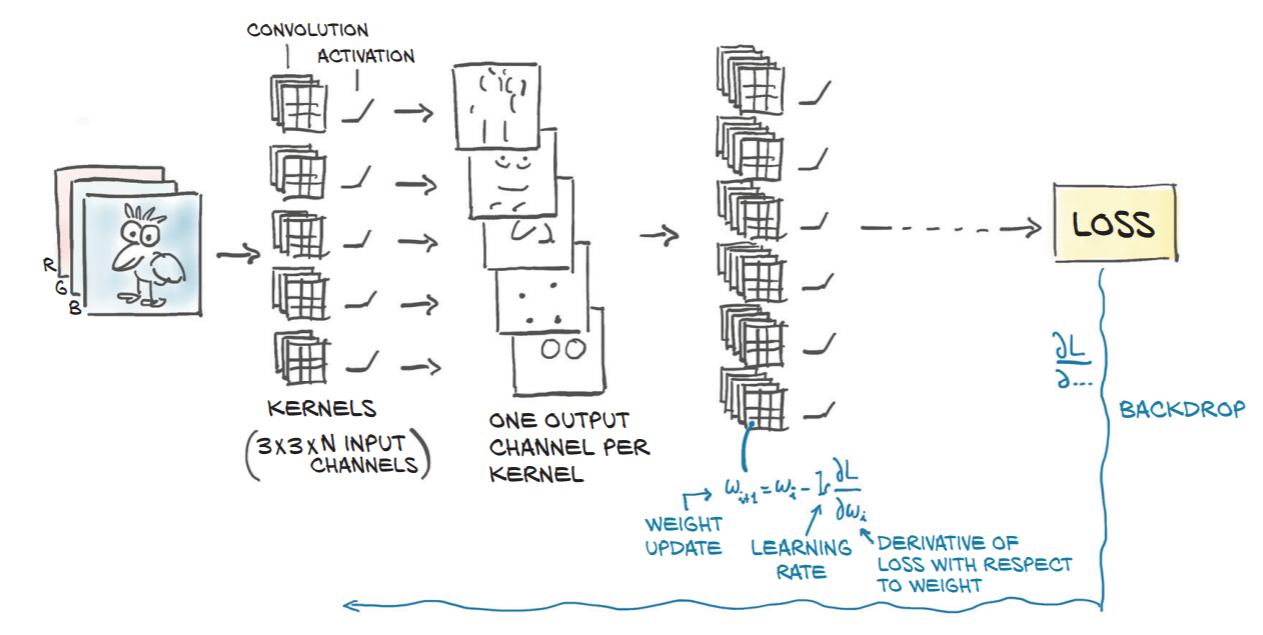 CONVOLUTION
ACTIVATION
R
G
B
KERNELS
(3X3XN INPUT
CHANNELS)
ONE OUTPUT
CHANNEL PER
KERNEL
LOSS
∂L
∂...
BACKDROP
ω_{i+1} = ω_i - lr ∂L
∂ω_i
WEIGHT
UPDATE
LEARNING
RATE
DERIVATIVE OF
LOSS WITH RESPECT
TO WEIGHT